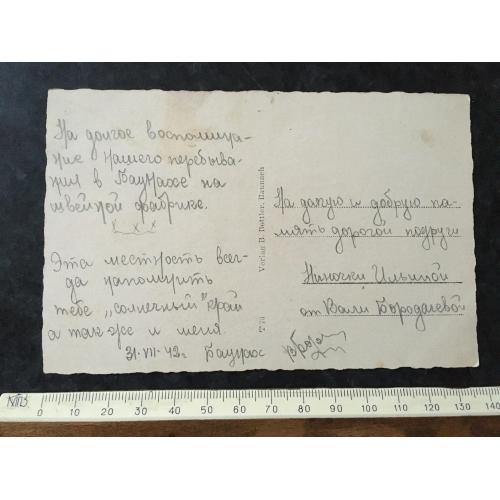 На долгое воспомина-
ние нашего перебыва-
ния в Баунахе на
швейной фабрике.
x x x
Эта местность всег-
да напомнить
тебе „солнечный" край
а так же и меня.
31-VII-43г. Баунах
Verlag B. Dottler, Baunach
T 75
На долгую и добрую па-
мять дорогой подруги
Ниночки Ильиной
от Вали Бородаевой
0 10 20 30 40 50 60 70 80 90 100 110 120 130 140